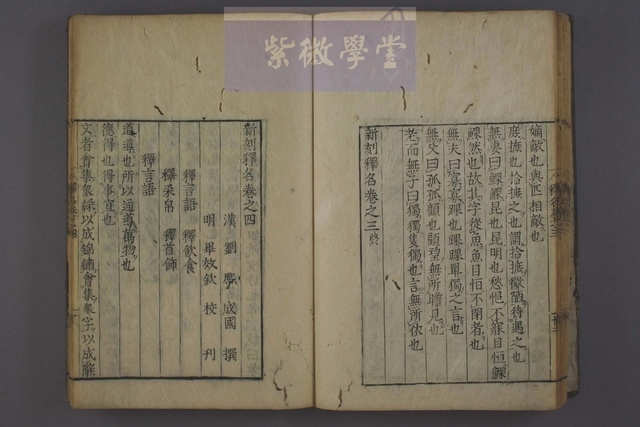 紫微學堂
嫡敵也與匹相敵也
庶摭也拾摭之也謂拾摭微陋待遇之也
無妻曰鰥鰥昆也昆明也愁悒不寐目恒鰥
鰥然也故其字從魚魚目恒不閉者也
無夫曰寡寡踝也踝踝單獨之言也
無父曰孤孤顧也顧望無所瞻見也
老而無子曰獨獨隻獨也言無所依也
新刻釋名卷之三終
新刻釋名卷之四
漢 劉熙成國 撰
明 畢效欽 校刊
釋言語 釋飲食
釋采帛 釋首飾
釋言語
道導也所以通導萬物也
德得也得事宜也
文者會集衆綵以成錦繡會集衆字以成辭